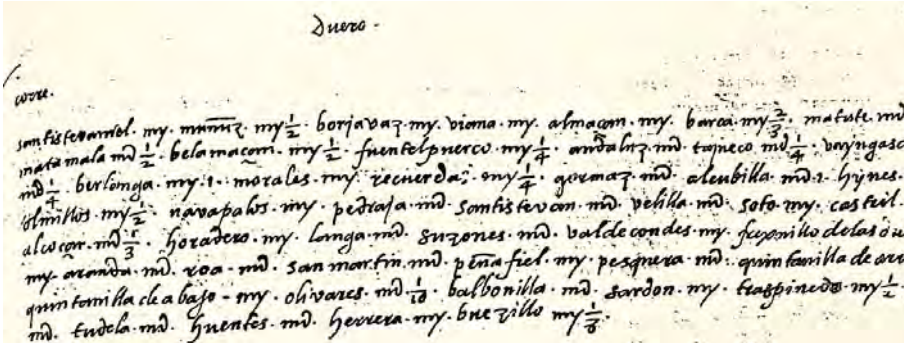 Duero.
corre.
santistevamiel. my. muniz. my 1/2. borjavaz. my. viana. my. almaçan. my. barca. my 2/3. matute. md
matamala md 1/2. belamaçam. my 1/2. fuentelpuerco. my 1/4. andaluz. md. tajueco. md 1/4. vayngasca
md 1/4. berlonga. my. 1. morales. my. recuerda. my 1/4. gormaz. md. alcubilla. md. 1. hynes.
olmillos. my 1/2. navapalos. my. pedraja. md. santistevan. md. velilla. md. soto. my. castil.
alcoçar. md 1/3. horadero. my. langa. md. suzones. md. valdecondes. my. fresnillo delas du
my. aranda. md. roa. md. san martin. md. peñafiel. my. pesquera. md. quintanilla de arr
quintanilla de abajo. my. olivares. md 1/10. balbonilla. md. sardon. my. traspinedo. my 1/2.
md. tudela. md. huentes. md. herrera. my. buezillo my 1/3.